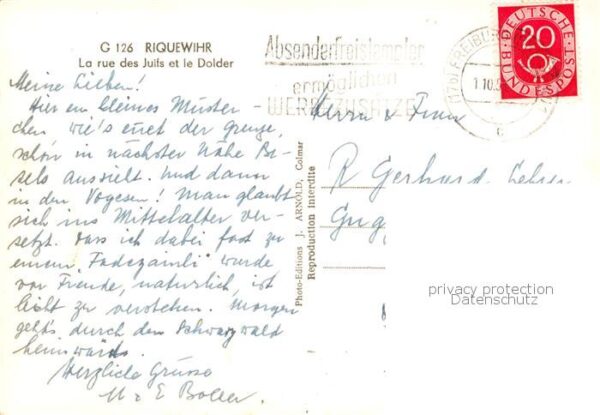 G 126 RIQUEWIHR
La rue des Juifs et le Dolder
Meine Lieben!
Hier ein kleines Muster-
chen wie's enet der Grenze,
schon in nächster Nähe Ba-
sels aussieht. Und dann
in den Vogesen! Man glaubt
sich ins Mittelalter ver-
setzt. Dass ich dabei fast zu
einem "Fadezäinli" wurde
vor Freude, natürlich, ist
leicht zu verstehen. Morgen
geht's durch den Schwarzwald
heimwärts.
Herzliche Grüsse
M. & E. Boller.
Photo-Editions J. ARNOLD, Colmar
Reproduction interdite
Absenderfreistempler
ermöglichen
WERBEZUSÄTZE
(17b) FREIBURG
1.10.5
c
DEUTSCHE
BUNDESPOST
20
Herrn & Frau
R Gerhard. Lehrer
privacy protection
Datenschutz